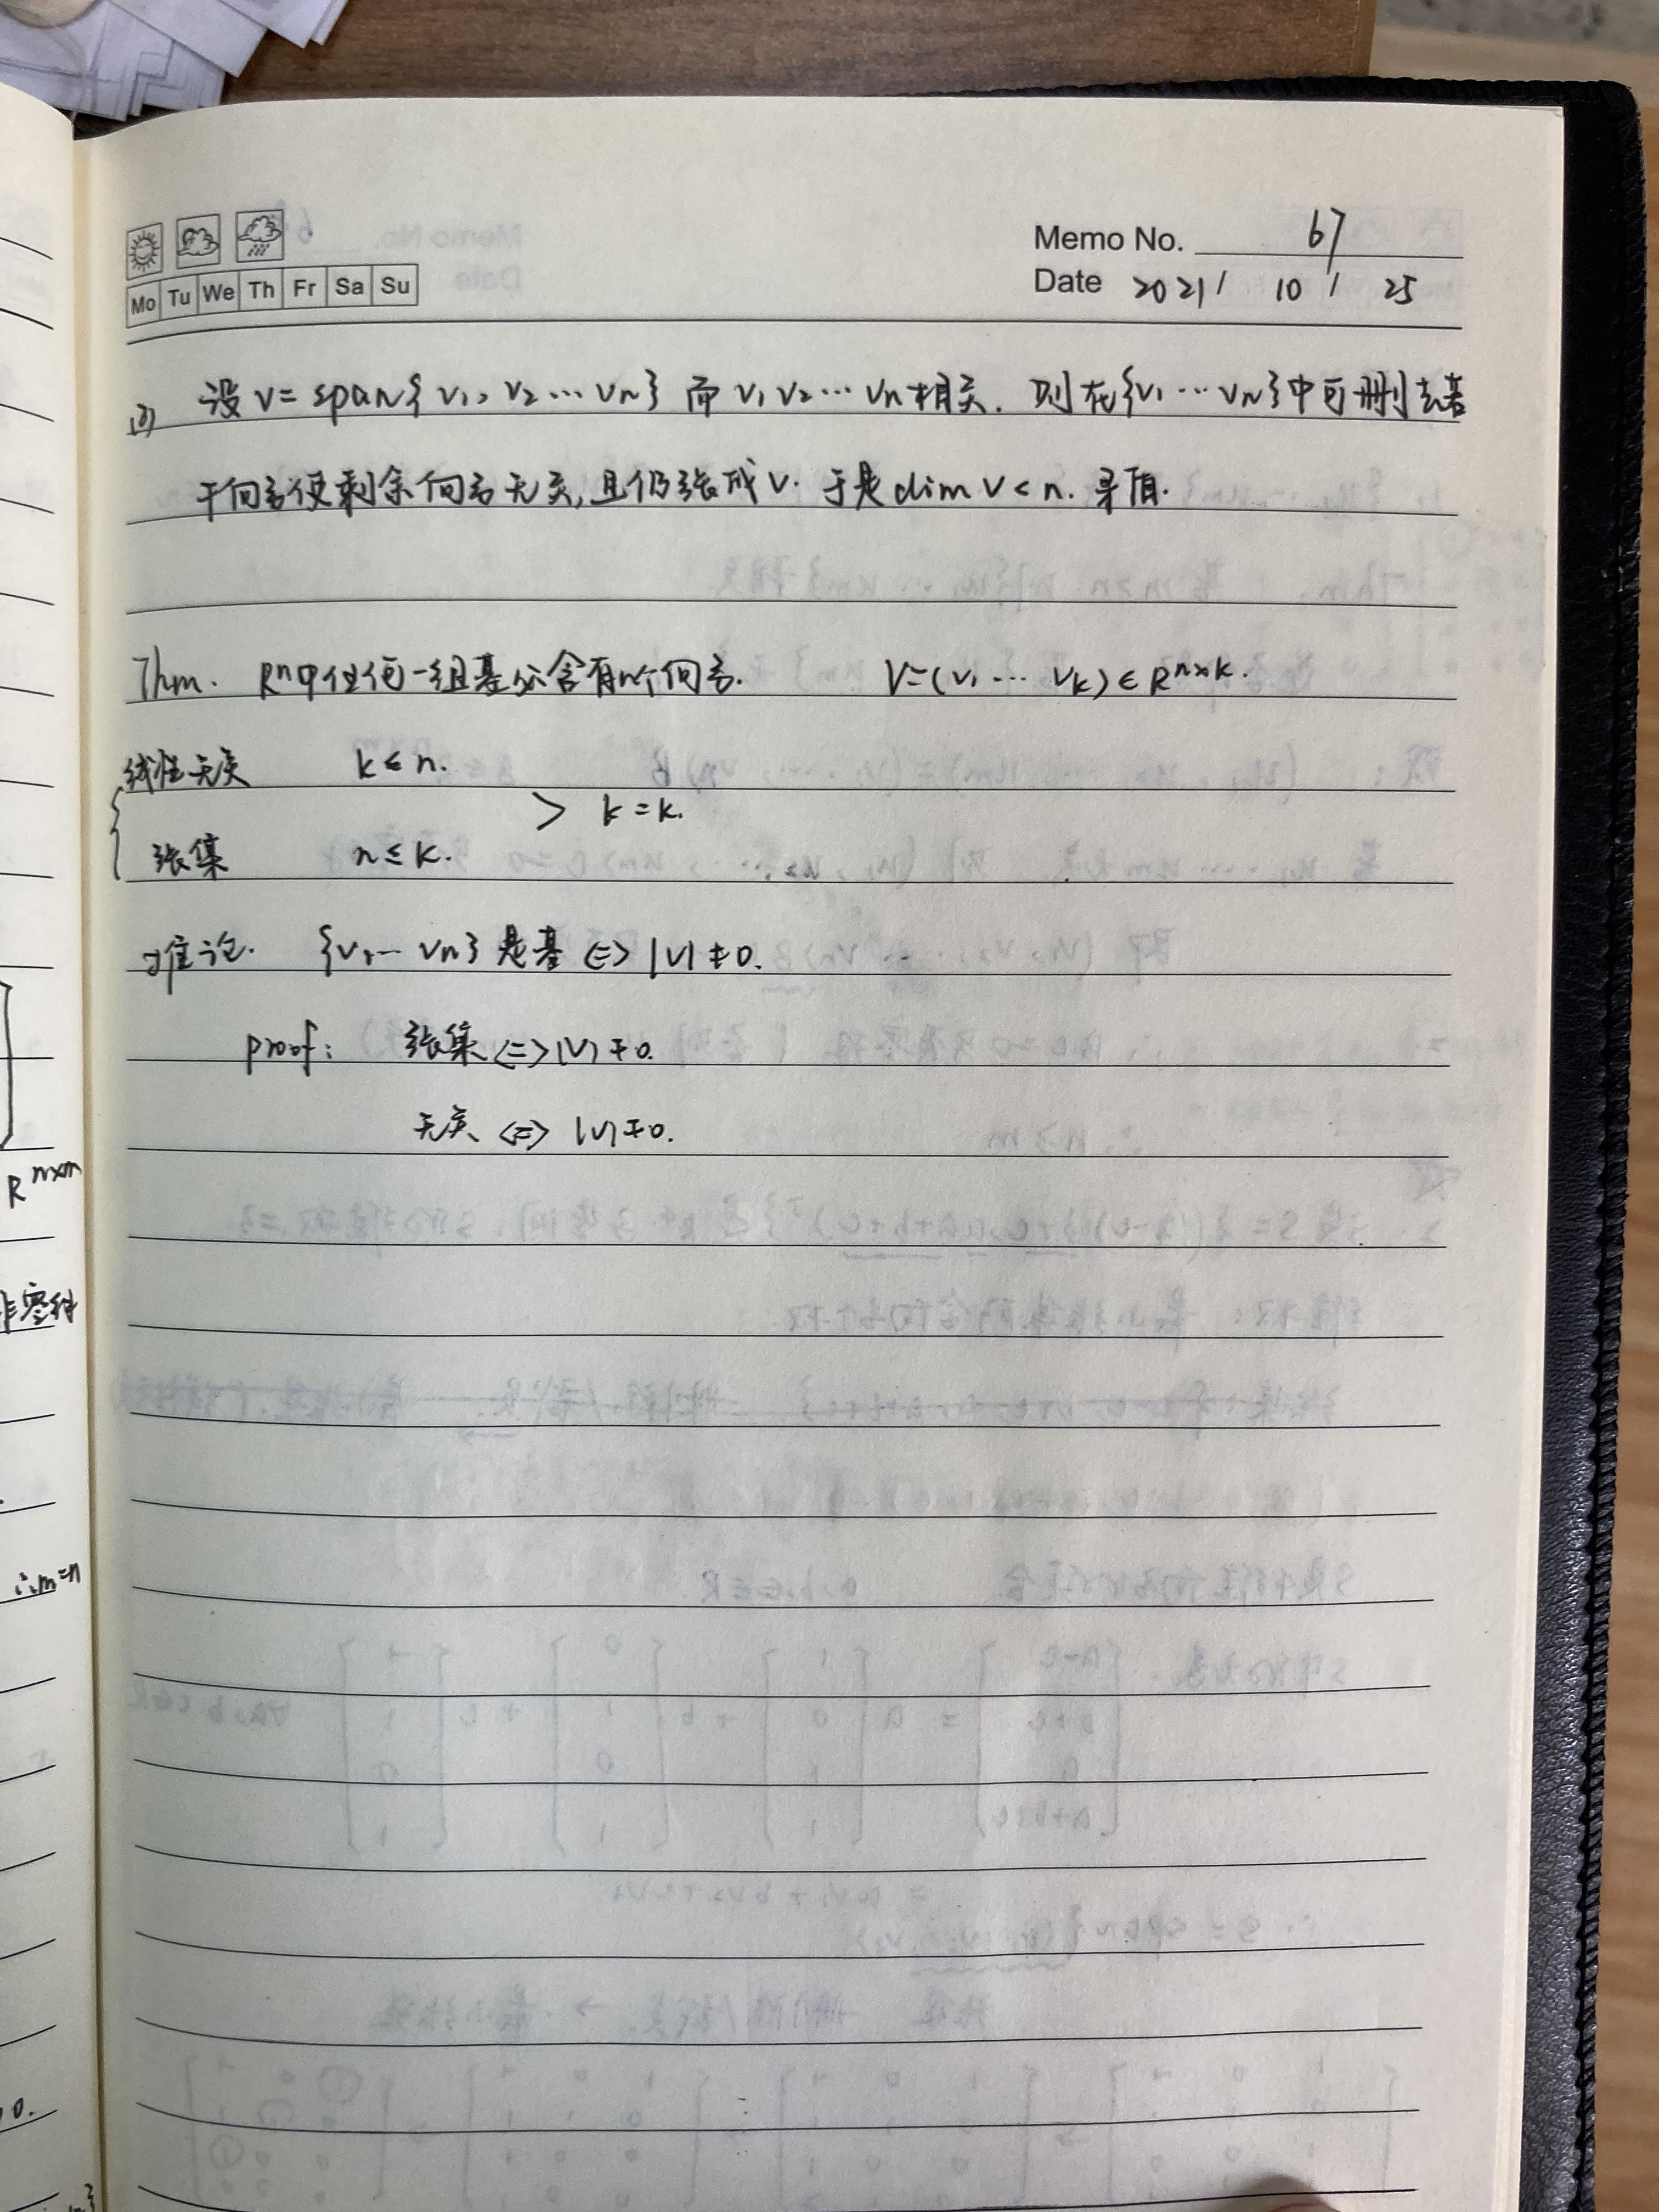 Memo No. 67
Mo Tu We Th Fr Sa Su
Date 2021 / 10 / 25
(2) 设 V = span{v₁, v₂ … vₙ} 而 v₁ v₂ … vₙ 相关. 则在{v₁ … vₙ}中可删去若
干向量使剩余向量无关,且仍张成V. 于是 dim V < n. 矛盾.
Thm. Rⁿ中任何一组基必含有n个向量. V=(v₁ … vₖ) ∈ Rⁿˣᵏ.
线性无关 k ≤ n.
> k = k.
张集 n ≤ k.
推论. {v₁ … vₙ} 是基 <=> |V| ≠ 0.
proof: 张集 <=> |V| ≠ 0.
无关 <=> |V| ≠ 0.
Rⁿˣᵐ
∴m=n